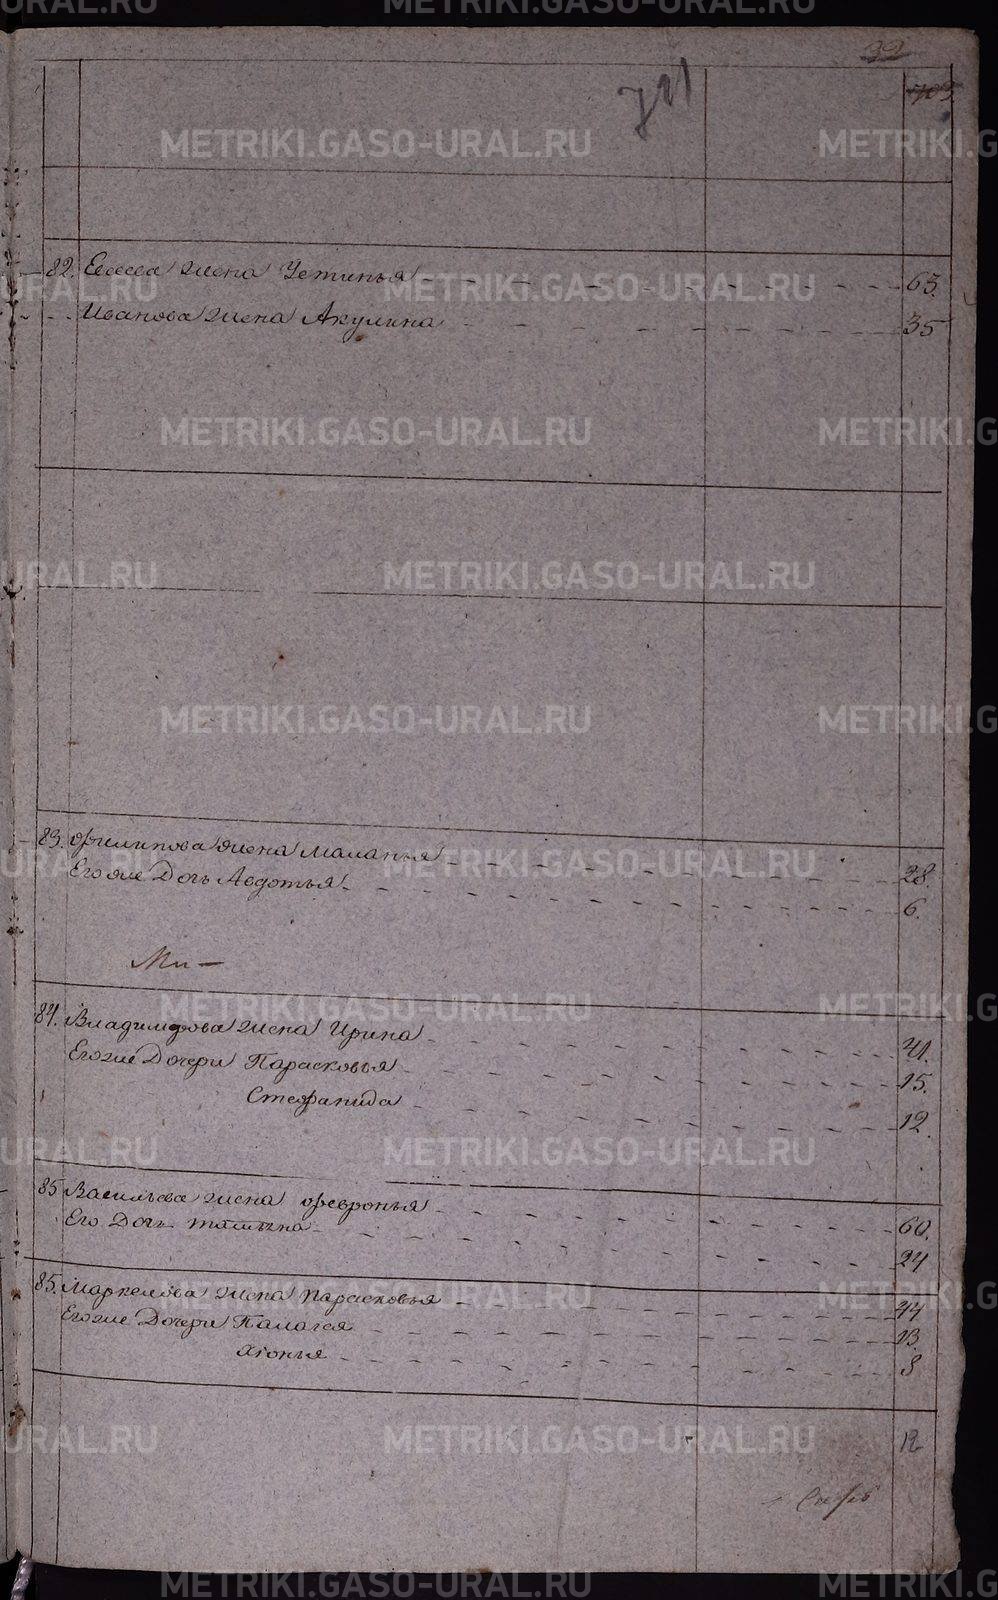 32
703
711
82. Елесеа жена Устинья 65.
Иванова жена Акулина 35
83. Филипова жена Маланья 28.
Егоже Дочь Авдотья 6.
Ми
84. Владимерова жена Ирина 41.
Егоже Дочери Парасковья 15.
Стефанида 12.
85 Васильева жена Февронья 60.
Его Дочь татьяна 24
85. Маркелова жена Парасковья 44
Егоже Дочери Палагея 13.
Хіонья 8
12
METRIKI.GASO-URAL.RU